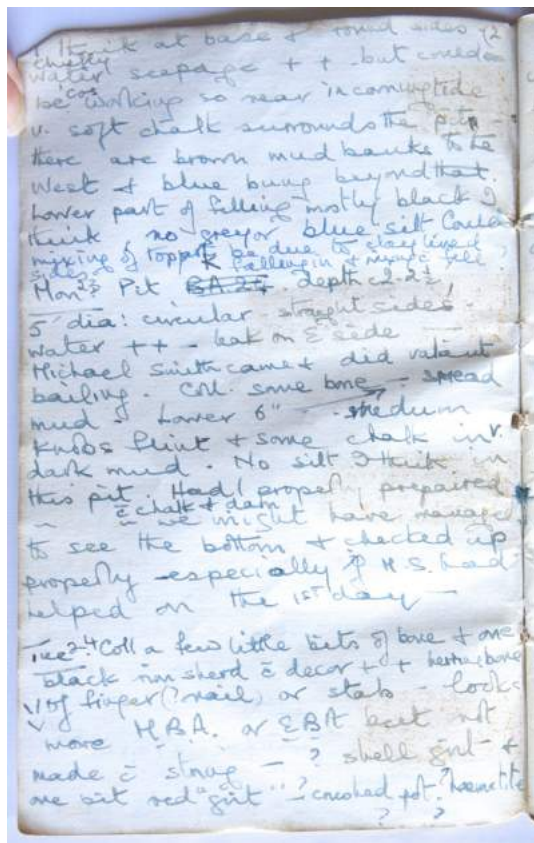 I think at base & round sides
chiefly
water seepage ++ - but could
be 'cos working so near incoming tide
v. soft chalk surrounds the pit -
there are brown mud banks to the
West & blue bung beyond that.
Lower part of filling mostly black I
think no grey or blue silt Could
mixing of top part be due to clay lined
sides falling in & mixing
Mon 23 Pit BA 24. depth c2-2½'
5' dia: circular straight sides.
water ++ - leak on E side -
Michael Smith came & did valiant
bailing. Coll. some bone - spread
mud - Lower 6" - medium
knobs flint & some chalk in v.
dark mud. No silt I think in
this pit. Had I properly prepaired
c̄ chalk & dam
we might have managed
to see the bottom & checked up
properly - especially if M.S. had
helped on the 1st day -
Tue 24 Coll a few little bits of bone & one
black rim sherd c̄ decor ++ herringbone
of finger (? nail) or stab - looks
more M.B.A. or EBA but not
made c̄ string - ? shell grit &
one bit red "grit" - ? crushed pot. ? haematite
? ?